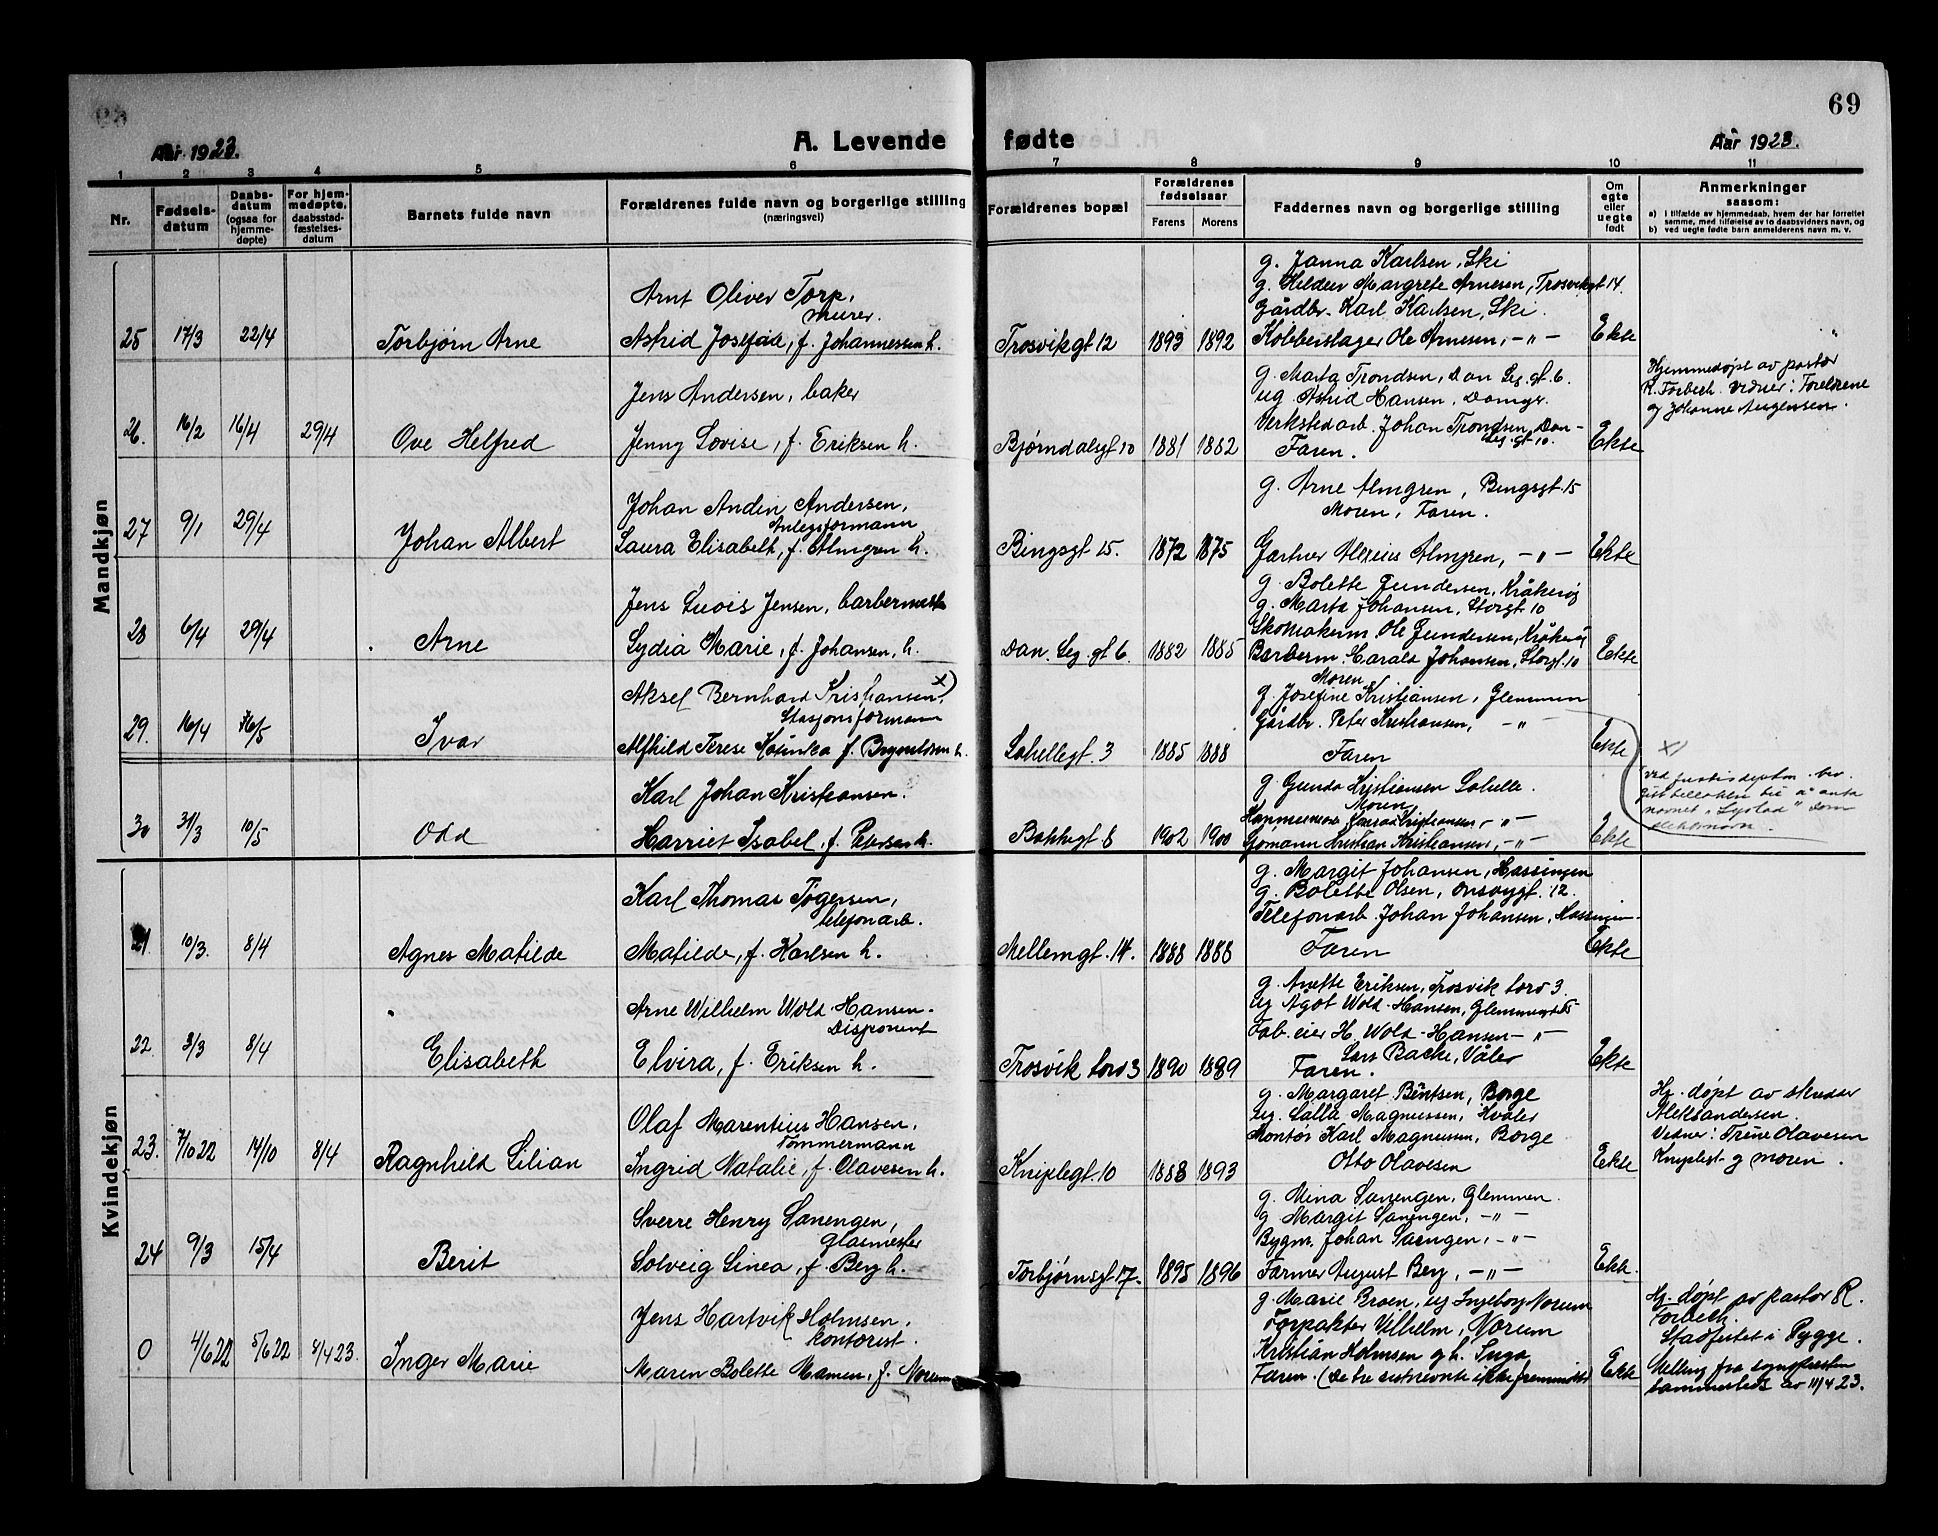 69
Aar 1923.
A. Levende fødte
Aar 1923.
1 2 3 4 5 6 7 8 9 10 11
Nr.
Fødsels-
datum
Daabs-
datum
(ogsaa for
hjemme-
døpte)
For hjem-
medøpte,
daabsstad-
fæstelses-
datum
Barnets fulde navn
Forældrenes fulde navn og borgerlige stilling
(næringsvei)
Forældrenes bopæl
Forældrenes
fødselsaar
Farens Morens
Faddernes navn og borgerlige stilling
Om
egte
eller
uegte
født
Anmerkninger
saasom:
a) I tilfælde av hjemmedaab, hvem der har forrettet
samme, med tilføielse av to daabsvidners navn, og
b) ved uegte fødte barn anmelderens navn m. v.
Mandkjøn
g. Janna Karlsen, Ski
g. Helden Margrete Arnesen, Trosvikgt 14.
Arnt Oliver Torp,
murer.
Gårdbr. Karl Karlsen, Ski.
25 17/3 22/4 Torbjørn Arne Astrid Josefine, f. Johannessen h. Trosvikgt 12 1893 1892 Kobberslager Ole Arnesen, -"- Ekte
Jens Andersen, baker
g. Marta Trondsen, Dan Leg. gt. 6.
ug Astrid Hansen, Damgr.
Verkstedarb. Johan Trondsen, Dan-
Leg. gt 10.
26. 16/2 16/4 29/4 Ove Helfred Jenny Lovise, f. Eriksen h. Bjørndalsgt 10 1881 1882 Faren. Ekte
Hjemmedøpt av pastor
R. Forbech. Vidner: Foreldrene
og Johanne Jørgensen.
Johan Andin Andersen,
Anlegsformann
g. Arne Almgren, Bingsgt. 15
Moren, Faren.
27 9/1 29/4 Johan Albert Laura Elisabeth, f. Almgren h. Bingsgt 15. 1872 1875 Gartner Alexius Almgren, -"- Ekte
Jens Luois Jensen, barbermester
g. Bolette Gundersen, Kråkerøy
g. Marta Johansen, Storgt 10
Skomakerm. Ole Gundersen, Kråkerøy
28 6/4 29/4 Arne Lydia Marie, f. Johansen, h. Dan. Leg. gt 6. 1882 1885 Barberm. Harald Johansen, Storgt. 10 Ekte
Moren
Aksel Bernhard Kristiansen, x)
Stasjonsformann
g. Josefine Kristiansen, Glemmen
Gårdbr. Peter Kristiansen, -"-
29. 16/4 16/5 Ivar Alfhild Terese f. h. Lahellegt. 3 1885 1888 Faren Ekte
x)
Karl Johan Kristiansen.
g. Gunda Kristiansen Lahelle.
Moren
Kristiansen, -"-
30 31/3 10/5 Odd Harriet Isabel, f. Petersen h. Bakkegt 8 1902 1900 Sjømann Kristian Kristiansen, -"- Ekte
Kvindekjøn
Karl Thomas Tøgersen,
telefonarb.
g. Margit Johansen, Hassingen
g. Bolette Olsen, Onsøygt. 12.
Telefonarb. Johan Johansen, Hassingen
21 10/3. 8/4 Agnes Matilde Matilde, f. Karlsen h. Mellemgt. 14. 1888 1888 Faren Ekte
Arne Wilhelm Wold Hansen.
Disponent
g. Anette Eriksen, Trosvik torv 3.
ug Ågot Wold-Hansen, Glemmengt
Fab. eier H. Wold-Hansen -"-
Lars Backe, Våler
22. 3/3 8/4 Elisabeth Elvira, f. Eriksen h. Trosvik torv 3 1890 1889 Faren. Ekte
Olaf Marentius Hansen,
Tømmermann
g. Margaret Bentsen, Borge
ug. Lalla Magnussen, Hvaler
Montør Karl Magnussen, Borge
23. 7/10 22 14/10 8/4 Ragnhild Lilian Ingrid Natalie, f. Olavesen h. Kniplegt. 10 1888 1893 Otto Olavesen Ekte
Hj. døpt av
Aleksandersen.
Vidner: Trine Olavesen
Kniplegt og moren.
Sverre Henry Sanengen,
Glasmester
g. Mina Sanengen, Glemmen.
g. Margit Sanengen, -"-
Bygm. Johan Sanengen, -"-
24 9/3 15/4 Berit Solveig Linea, f. Berg h. Torbjørnsgt 17. 1895 1896 Farmer August Berg, -"- Ekte.
Jens Hartvik Holmsen,
kontorist.
g. Marie Broen, ug Ingeborg Norum
Forpakter Vilhelm Norum
Kristian Holmsen og h. Inga
0 4/6 22 5/6 22 8/4 23. Inger Marie Maren Bolette Mamen, f. Norum Faren. (De tre sistnevnte ikke fremmøtt) Ekte
Hj. døpt av pastor R.
Forbech.
Stadfestet i Rygge.
Melding fra sognepresten
sammesteds av 11/4 23.